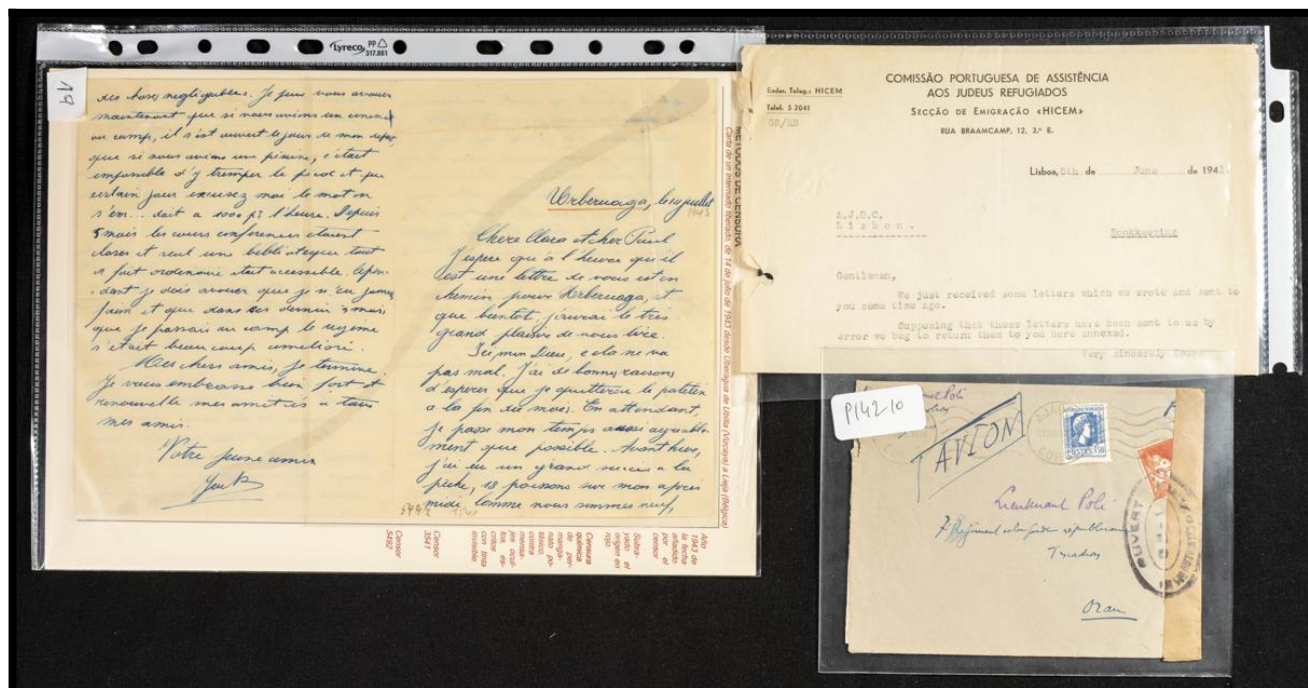 Lyreco
PP
317.881
19
des choses négligeables. Je puis vous avouer
maintenant que si nous avions un cinema
au camp, il s'est ouvert le jour de mon
que si nous avions une piscine, c'était
impossible d'y tremper le pied et, un
certain jour excusez moi le mot on
s'em... dait a 1000 p% l'heure. Depuis
5 mois les cours conférences étaient
closes et seul une bibliotheque tout
a fait ordinaire était accessible. Cepen-
dant je dois avouer que je n'eu jamais
faim et que dans les dernier 5 mois
que je passais au camp le regime
s'était beaucoup amélioré.
Mes chers amis, je termine.
Je vous embrasse bien fort et
renouvelle mes amitiés à tous
mes amis.
Votre jeune ami
Urberuaga, le 14 juillet
1943
Chere Clara et cher Paul
J'espère qu'à l'heure qu'il
est une lettre de vous est en
chemin pour Urberuaga, et
que bientot, j'aurai le tres
grand plaisir de vous lire.
Ici, mon Dieu, cela ne va
pas mal. J'ai de bonnes raisons
d'esperer que je quitterai le patelin
a la fin du mois. En attendant,
je passe mon temps aussi agreable-
ment que possible. Avant hier,
j'ai eu un grand succes a la
pêche, 18 poissons sur mon apres
midi. Comme nous sommes neuf,
METODOS DE CENSURA
Carta de un internado liberado, de 14 de julio de 1943 desde Uberuagua de Ubilla (Vizcaya) a Lieja (Bélgica)
Año
1943 de
la fecha
añadido
por el
censor
Subra-
yado el
origen en
rojo.
Censura
química
de per-
manga-
nato po-
tásico,
contra
mensa-
jes ocul-
tos, es-
critos
con tinta
invisible.
Censor
3541
Censor
5492
COMISSÃO PORTUGUESA DE ASSISTÊNCIA
AOS JUDEUS REFUGIADOS
SECÇÃO DE EMIGRAÇÃO «HICEM»
RUA BRAAMCAMP, 12, 2.º E.
Ender. Teleg.: HICEM
Telef. 5 2041
GR/EB
Lisboa, 5th de June de 1943.
A.J.D.C.
Lisbon.
Bookkeeping
Gentlemen,
We just received some letters which we wrote and sent to
you some time ago.
Supposing that these letters have been sent to us by
error we beg to return them to you here annexed.
Very sincerely yours
P142-10
Poli
AVION
POSTES 1,50
Lieutenant Poli
7e Régiment de la garde républicaine
Oran
OUVERT